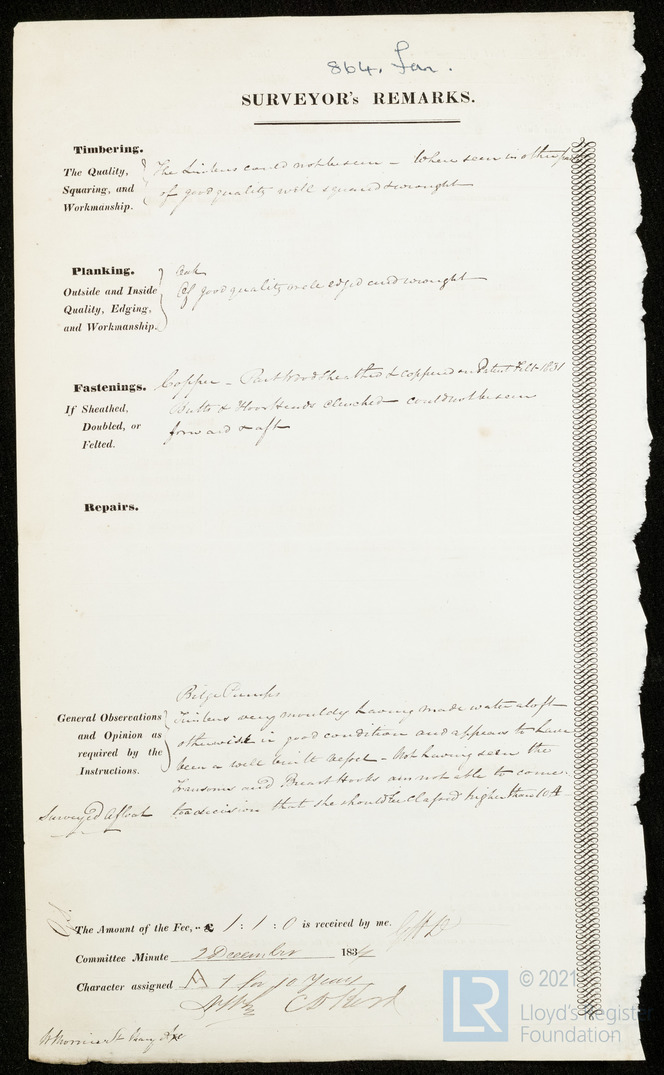 864. Lon.
SURVEYOR's REMARKS.
Timbering.
The Quality,
Squaring, and
Workmanship.
The Timbers could not be seen – Where seen in other parts
of good quality well squared & wrought
Planking.
Outside and Inside
Quality, Edging,
and Workmanship.
Oak
Of good quality well edged and wrought
Fastenings.
If Sheathed,
Doubled, or
Felted.
Copper – Part Wood Sheathed & Coppered on Patent Felt 1831
Butts & Hood Hends Clenched could not be seen
forward & aft
Repairs.
General Observations
and Opinion as
required by the
Instructions.
Bilge Pumps
Timbers very mouldy having made water aloft
otherwise in good condition and appears to have
been a well built vessel – Not having seen the
Transoms and Breast Hooks am not able to come
to a decision that she should be Classed higher than 10 A
Surveyed Afloat
The Amount of the Fee, -- £ 1 : 1 : 0 is received by me.
Committee Minute 2 December 1834
Character assigned A 1 for 10 Years
© 2021
LR
Lloyd's Register
Foundation